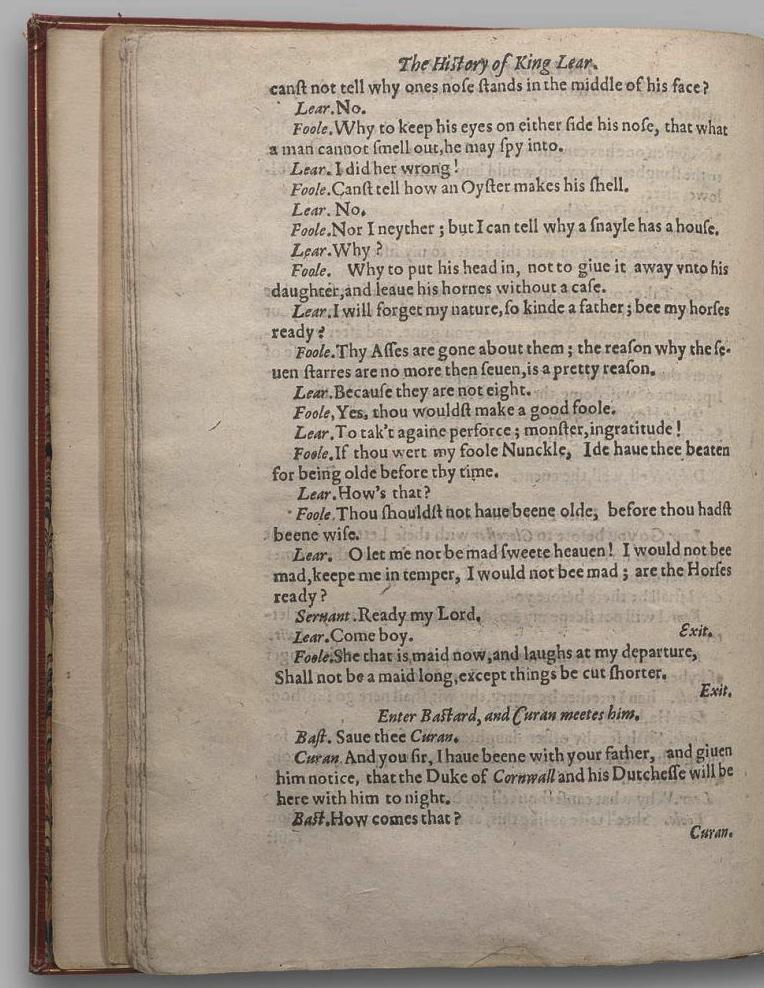 The Hiſtory of King Lear.
canſt not tell why ones noſe ſtands in the middle of his face?
Lear.No.
Foole.Why to keep his eyes on either ſide his noſe, that what
a man cannot ſmell out,he may ſpy into.
Lear. I did her wrong!
Foole.Canſt tell how an Oyſter makes his ſhell.
Lear. No.
Foole.Nor I neyther ; but I can tell why a ſnayle has a houſe.
Lear.Why ?
Foole. Why to put his head in, not to giue it away vnto his
daughter,and leaue his hornes without a caſe.
Lear.I will forget my nature,ſo kinde a father ; bee my horſes
ready ?
Foole.Thy Aſſes are gone about them ; the reaſon why the ſe-
uen ſtarres are no more then ſeuen,is a pretty reaſon.
Lear.Becauſe they are not eight.
Foole,Yes, thou wouldſt make a good foole.
Lear.To tak't againe perforce ; monſter,ingratitude !
Foole.If thou wert my foole Nunckle, Ide haue thee beaten
for being olde before thy time.
Lear.How's that?
Foole.Thou ſhouldſt not haue beene olde, before thou hadſt
beene wiſe.
Lear. O let me not be mad ſweete heauen! I would not bee
mad,keepe me in temper, I would not bee mad ; are the Horſes
ready ?
Seruant.Ready my Lord.
Lear.Come boy. Exit.
Foole.She that is maid now,and laughs at my departure,
Shall not be a maid long,except things be cut ſhorter.
Exit.
Enter Baſtard, and Curan meetes him.
Baſt. Saue thee Curan.
Curan And you ſir, I haue beene with your father, and giuen
him notice, that the Duke of Cornwall and his Dutcheſſe will be
here with him to night.
Baſt.How comes that ?
Curan.